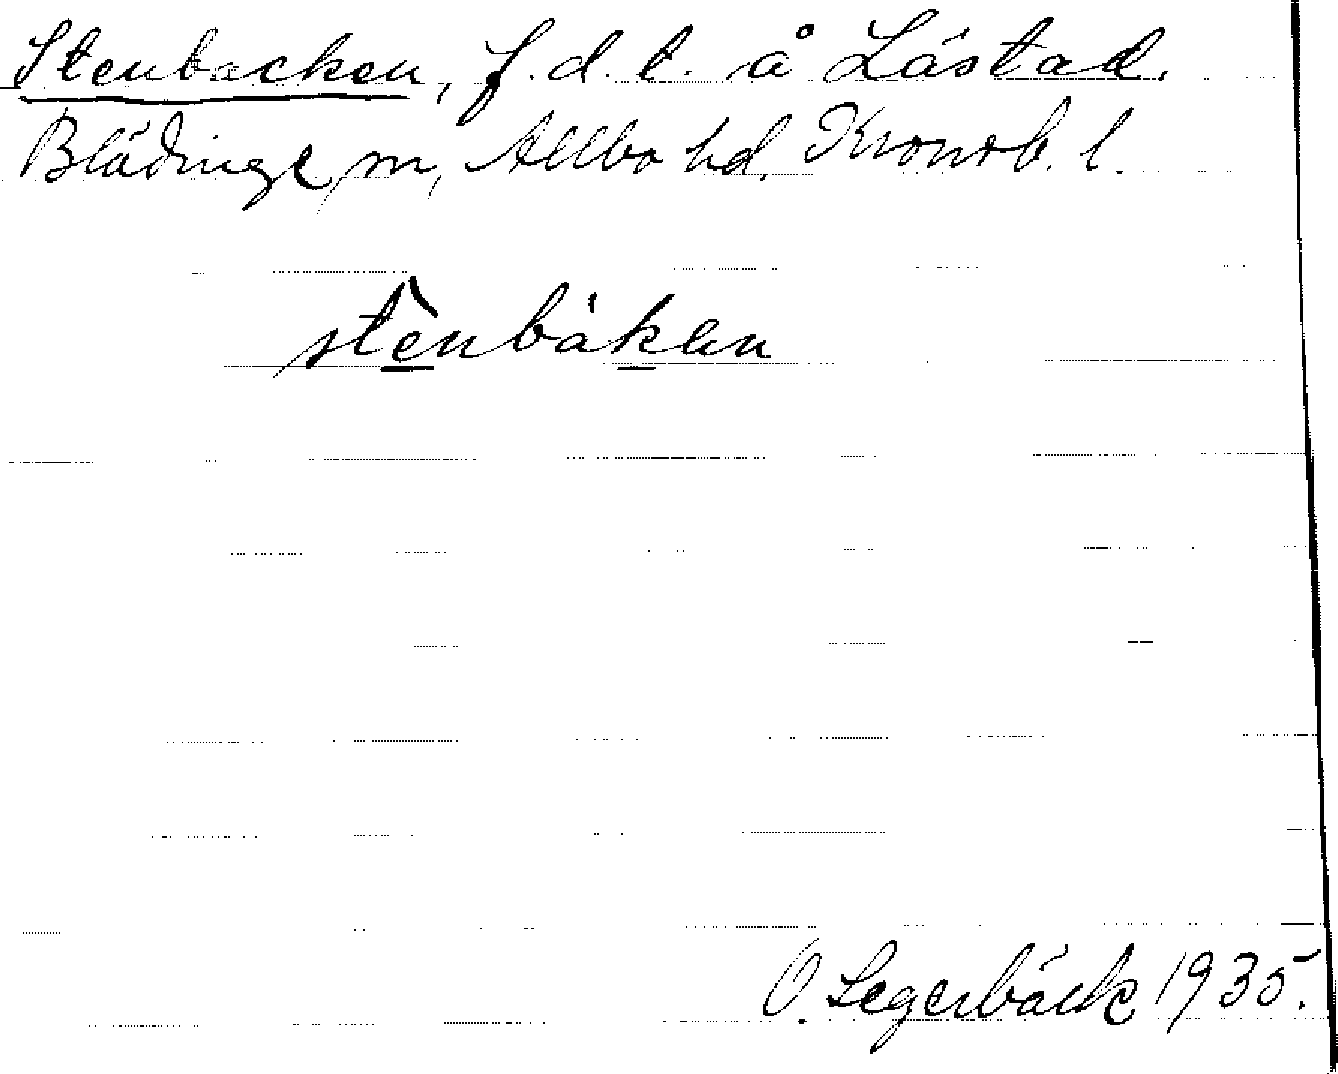 Stenbacken, f.d.t. å Låstad.
Blädinge sn, Allbo hd. Kronob. l.
stenbákan
O. Segerbäck 1935.